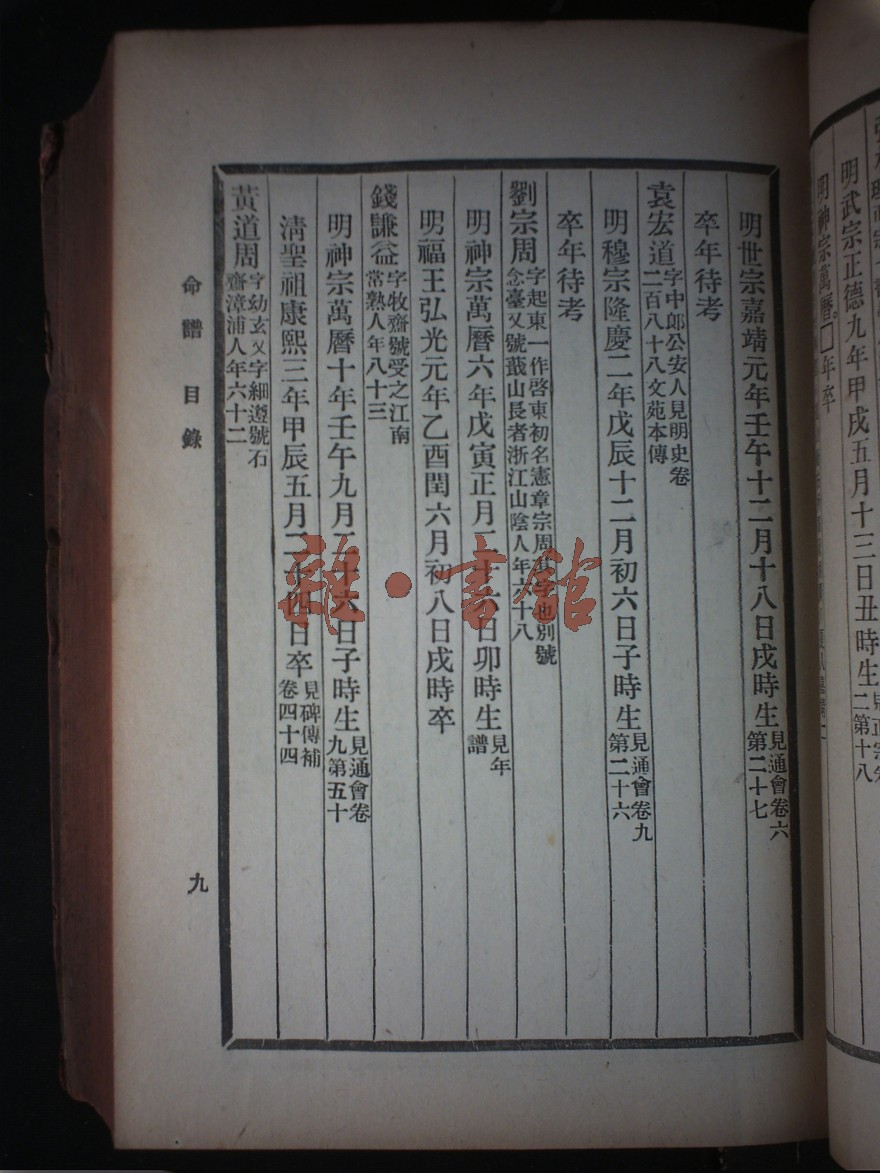 明武宗正德九年甲戌五月十三日丑時生
二第十八
明神宗萬曆□年卒
明世宗嘉靖元年壬午十二月十八日戌時生
見通會卷六
第二十七
卒年待考
袁宏道
字中郎公安人見明史卷
二百八十八文苑本傳
明穆宗隆慶二年戊辰十二月初六日子時生
見通會卷九
第二十六
卒年待考
劉宗周
字起東一作啓東初名憲章宗周其字也別號
念臺又號蕺山長者浙江山陰人年六十八
明神宗萬曆六年戊寅正月二十六日卯時生
見年
譜
明福王弘光元年乙酉閏六月初八日戌時卒
錢謙益
字牧齋號受之江南
常熟人年八十三
明神宗萬曆十年壬午九月二十六日子時生
見通會卷
九第五十
清聖祖康熙三年甲辰五月二十四日卒
見碑傳補
卷四十四
黃道周
字幼玄又字細遵號石
齋漳浦人年六十二
命譜 目錄
九
雜·書館